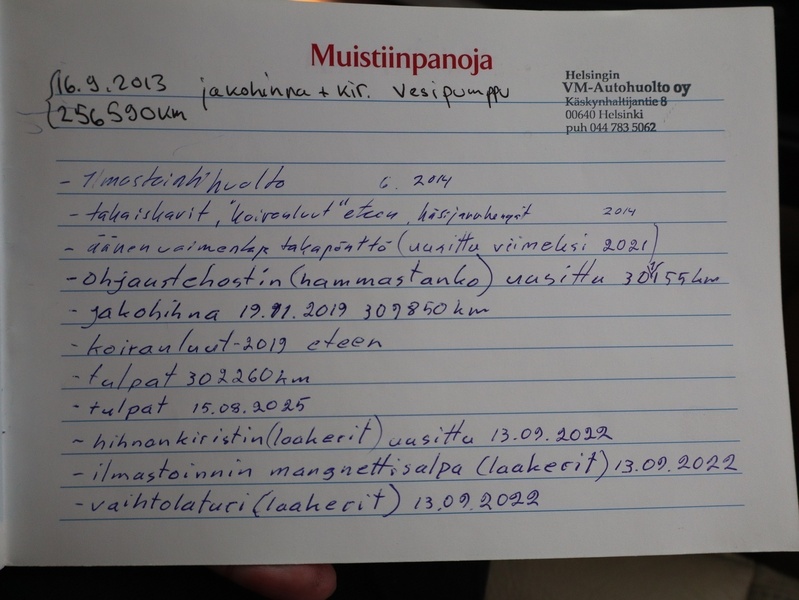 Muistiinpanoja
16.9.2013 jakohinna + kir. vesipumppu
256590km
Helsingin
VM-Autohuolto oy
Käskynhaltijantie 8
00640 Helsinki
puh 044 783 5062
- Ilmastointihuolto 6. 2014
- takaiskarit, "koiranluut" eteen, käsijarruhengät 2014
- äänenvaimentaja takapönttö (uusittu viimeksi 2021)
- ohjaustehostin (hammastanko) uusittu km
- jakohihna 19.11.2019 309850km
- koiranluut-2019 eteen
- tulpat 302260km
- tulpat 15.08.2025
- hihnankiristin (laakerit) uusittu 13.09.2022
- ilmastoinnin mangnettisalpa (laakerit) 13.09.2022
- vaihtolaturi (laakerit) 13.09.2022